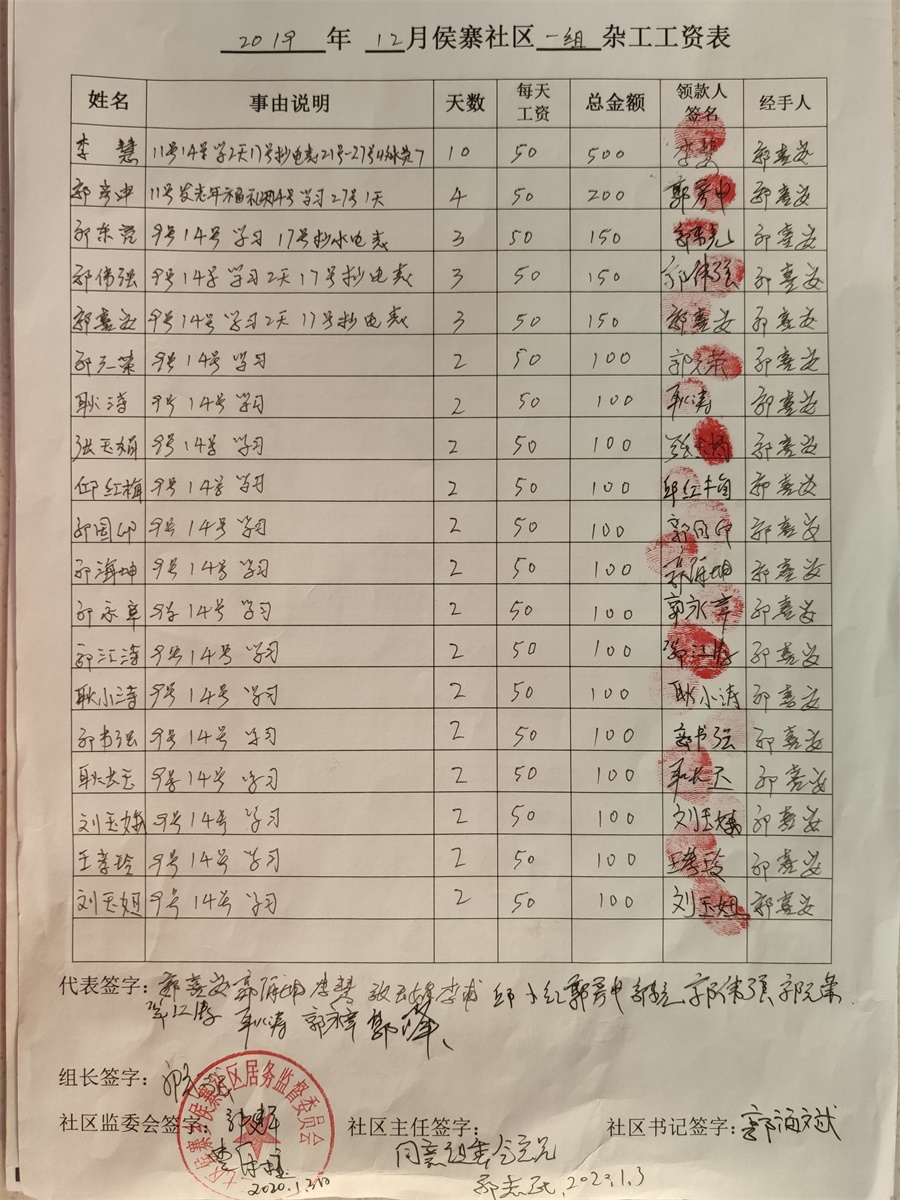 2019 年 12月侯寨社区一组 杂工工资表
姓名 事由说明 天数 每天工资 总金额 领款人签名 经手人
李慧 11号14号学2天17号抄电表21号-27号 10 50 500 李慧 郭喜安
郭彦申 11号发老年福利 14号学习27号1天 4 50 200 郭彦申 郭喜安
郭东亮 9号14号 学习 17号抄水电表 3 50 150 郭东亮 郭喜安
郭伟强 9号14号学习2天17号抄电表 3 50 150 郭伟强 郭喜安
郭喜安 9号14号学习2天17号抄电表 3 50 150 郭喜安 郭喜安
郭元荣 9号14号 学习 2 50 100 郭元荣 郭喜安
耿涛 9号14号 学习 2 50 100 耿涛 郭喜安
张玉娟 9号14号 学习 2 50 100 郭喜安
邱红梅 9号14号 学习 2 50 100 邱红梅 郭喜安
郭国印 9号14号 学习 2 50 100 郭国印 郭喜安
郭海坤 9号14号 学习 2 50 100 郭海坤 郭喜安
郭永章 9号14号 学习 2 50 100 郭永章 郭喜安
郭江涛 9号14号 学习 2 50 100 郭江涛 郭喜安
耿小涛 9号14号 学习 2 50 100 耿小涛 郭喜安
郭书强 9号14号 学习 2 50 100 郭书强 郭喜安
耿长玉 9号14号 学习 2 50 100 郭喜安
刘玉娥 9号14号 学习 2 50 100 刘玉娥 郭喜安
王孝玲 9号14号 学习 2 50 100 王孝玲 郭喜安
刘玉妞 9号14号 学习 2 50 100 刘玉妞 郭喜安
代表签字：郭喜安 郭海坤 李慧 郭彦申 郭东亮 郭伟强 郭元荣
郭江涛 耿涛 郭永章
组长签字：
社区监委会签字： 社区主任签字： 社区书记签字：
侯寨社区居务监督委员会
2020.1.3
2020.1.3